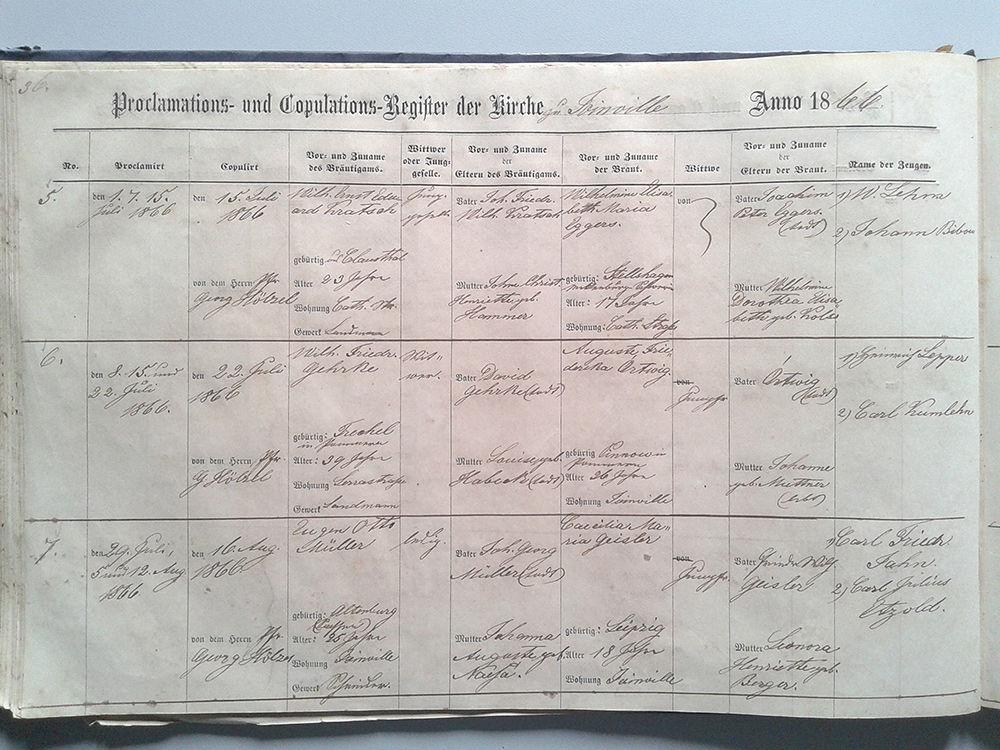 36.
Proclamations- und Copulations-Register der Kirche zu Joinville Anno 1866.
No.
Proclamirt
Copulirt
Vor- und Zuname
des Bräutigams.
Wittwer
oder Jung-
geselle.
Vor- und Zuname
der
Eltern des Bräutigams.
Vor- und Zuname
der Braut.
Wittwe
Vor- und Zuname
der
Eltern der Braut.
Name der Zeugen.
5.
den 1. 7. 15.
Juli 1866
den 15. Juli
1866
von dem Herrn Pfr.
Georg Hölzel
Wilh. Ernst Edu
ard Kratsch
gebürtig: Clausthal
Alter 23 Jahr
Wohnung Cath. Str.
Gewerk Landmann
Jung-
Vater Joh. Friedr.
Wilh. Kratsch
Mutter Johne Christ.
Henriette geb.
Hammer
Wilhelmine Elisa
beth Maria
Eggers.
gebürtig: Stellshagen
Alter: 17 Jahr
Wohnung: Cath. Straße
von
Vater Joachim
Peter Eggers.
(todt)
Mutter Wilhelmine
Dorothea Elisa
beth geb.
1) W. Lehm
2) Johann
6.
den 8. 15 und
22. Juli
1866.
den 22. Juli
1866
von dem Herrn Pfr.
G. Hölzel
Wilh. Friedr.
Gehrke
gebürtig: Trechel
in Pommern
Alter: 39 Jahr
Wohnung Serrastraße
Gewerk Landmann
Wit-
wer.
Vater David
Gehrke (todt)
Mutter Louise geb.
Habeck (todt)
Auguste Frie-
dericka Ortwig.
gebürtig Pinnow in
Pommern
Alter 26 Jahr
Wohnung Joinville
von
Jungfr
Vater Ortwig
(todt)
Mutter Johanne
geb. Muttner
1) Heinrich Lepper
2) Carl Kumlehn
7.
den 29. Juli,
5 und 12. Aug
1866
den 16. Aug.
1866.
von dem Herrn Pfr.
Georg Hölzel
Eugen Otto
Müller
gebürtig: Altenburg
Alter: 25 Jahr
Wohnung Joinville
Gewerk
ledig.
Vater Joh. Georg
Müller (todt)
Mutter Johanna
Auguste geb.
Caecilia Ma-
ria Geisler
gebürtig: Leipzig
Alter 18 Jahr
Wohnung Joinville
von
Jungfr
Vater
Geisler
Mutter Leonora
Henriette geb.
Berger.
1) Carl Friedr.
Jahn.
2) Carl Julius
Etzold.